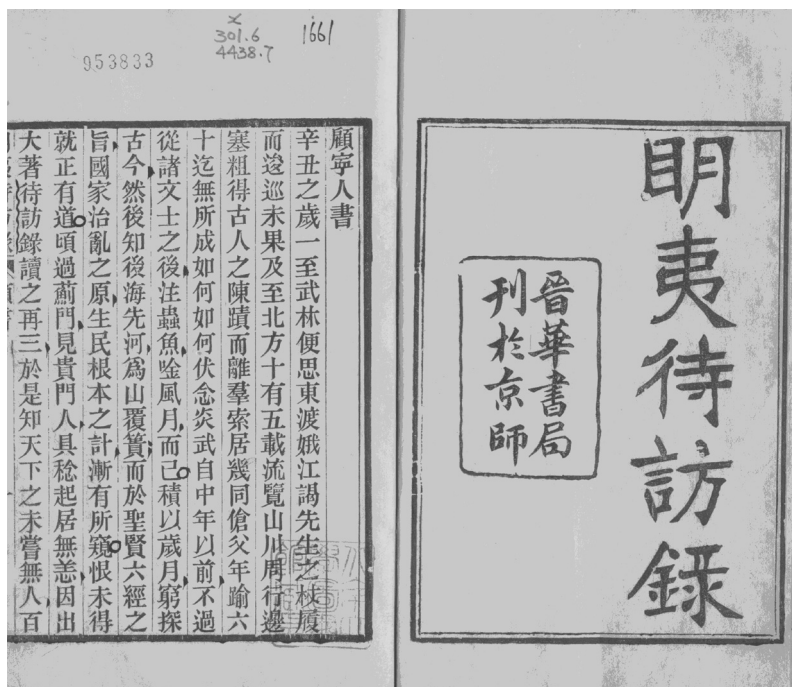 明夷待訪錄
晉華書局
刊於京師
1661
x
301.6
4438.7
953833
顧寧人書
辛丑之歲一至武林便思東渡娥江謁先生之杖履
而逡巡未果及至北方十有五載流覽山川周行邊
塞粗得古人之陳蹟而離羣索居幾同傖父年踰六
十迄無所成如何如何伏念炎武自中年以前不過
從諸文士之後注蟲魚唫風月而已積以歲月窮探
古今然後知後海先河爲山覆簣而於聖賢六經之
旨國家治亂之原生民根本之計漸有所窺恨未得
就正有道頃過薊門見貴門人具稔起居無恙因出
大著待訪錄讀之再三於是知天下之未嘗無人百